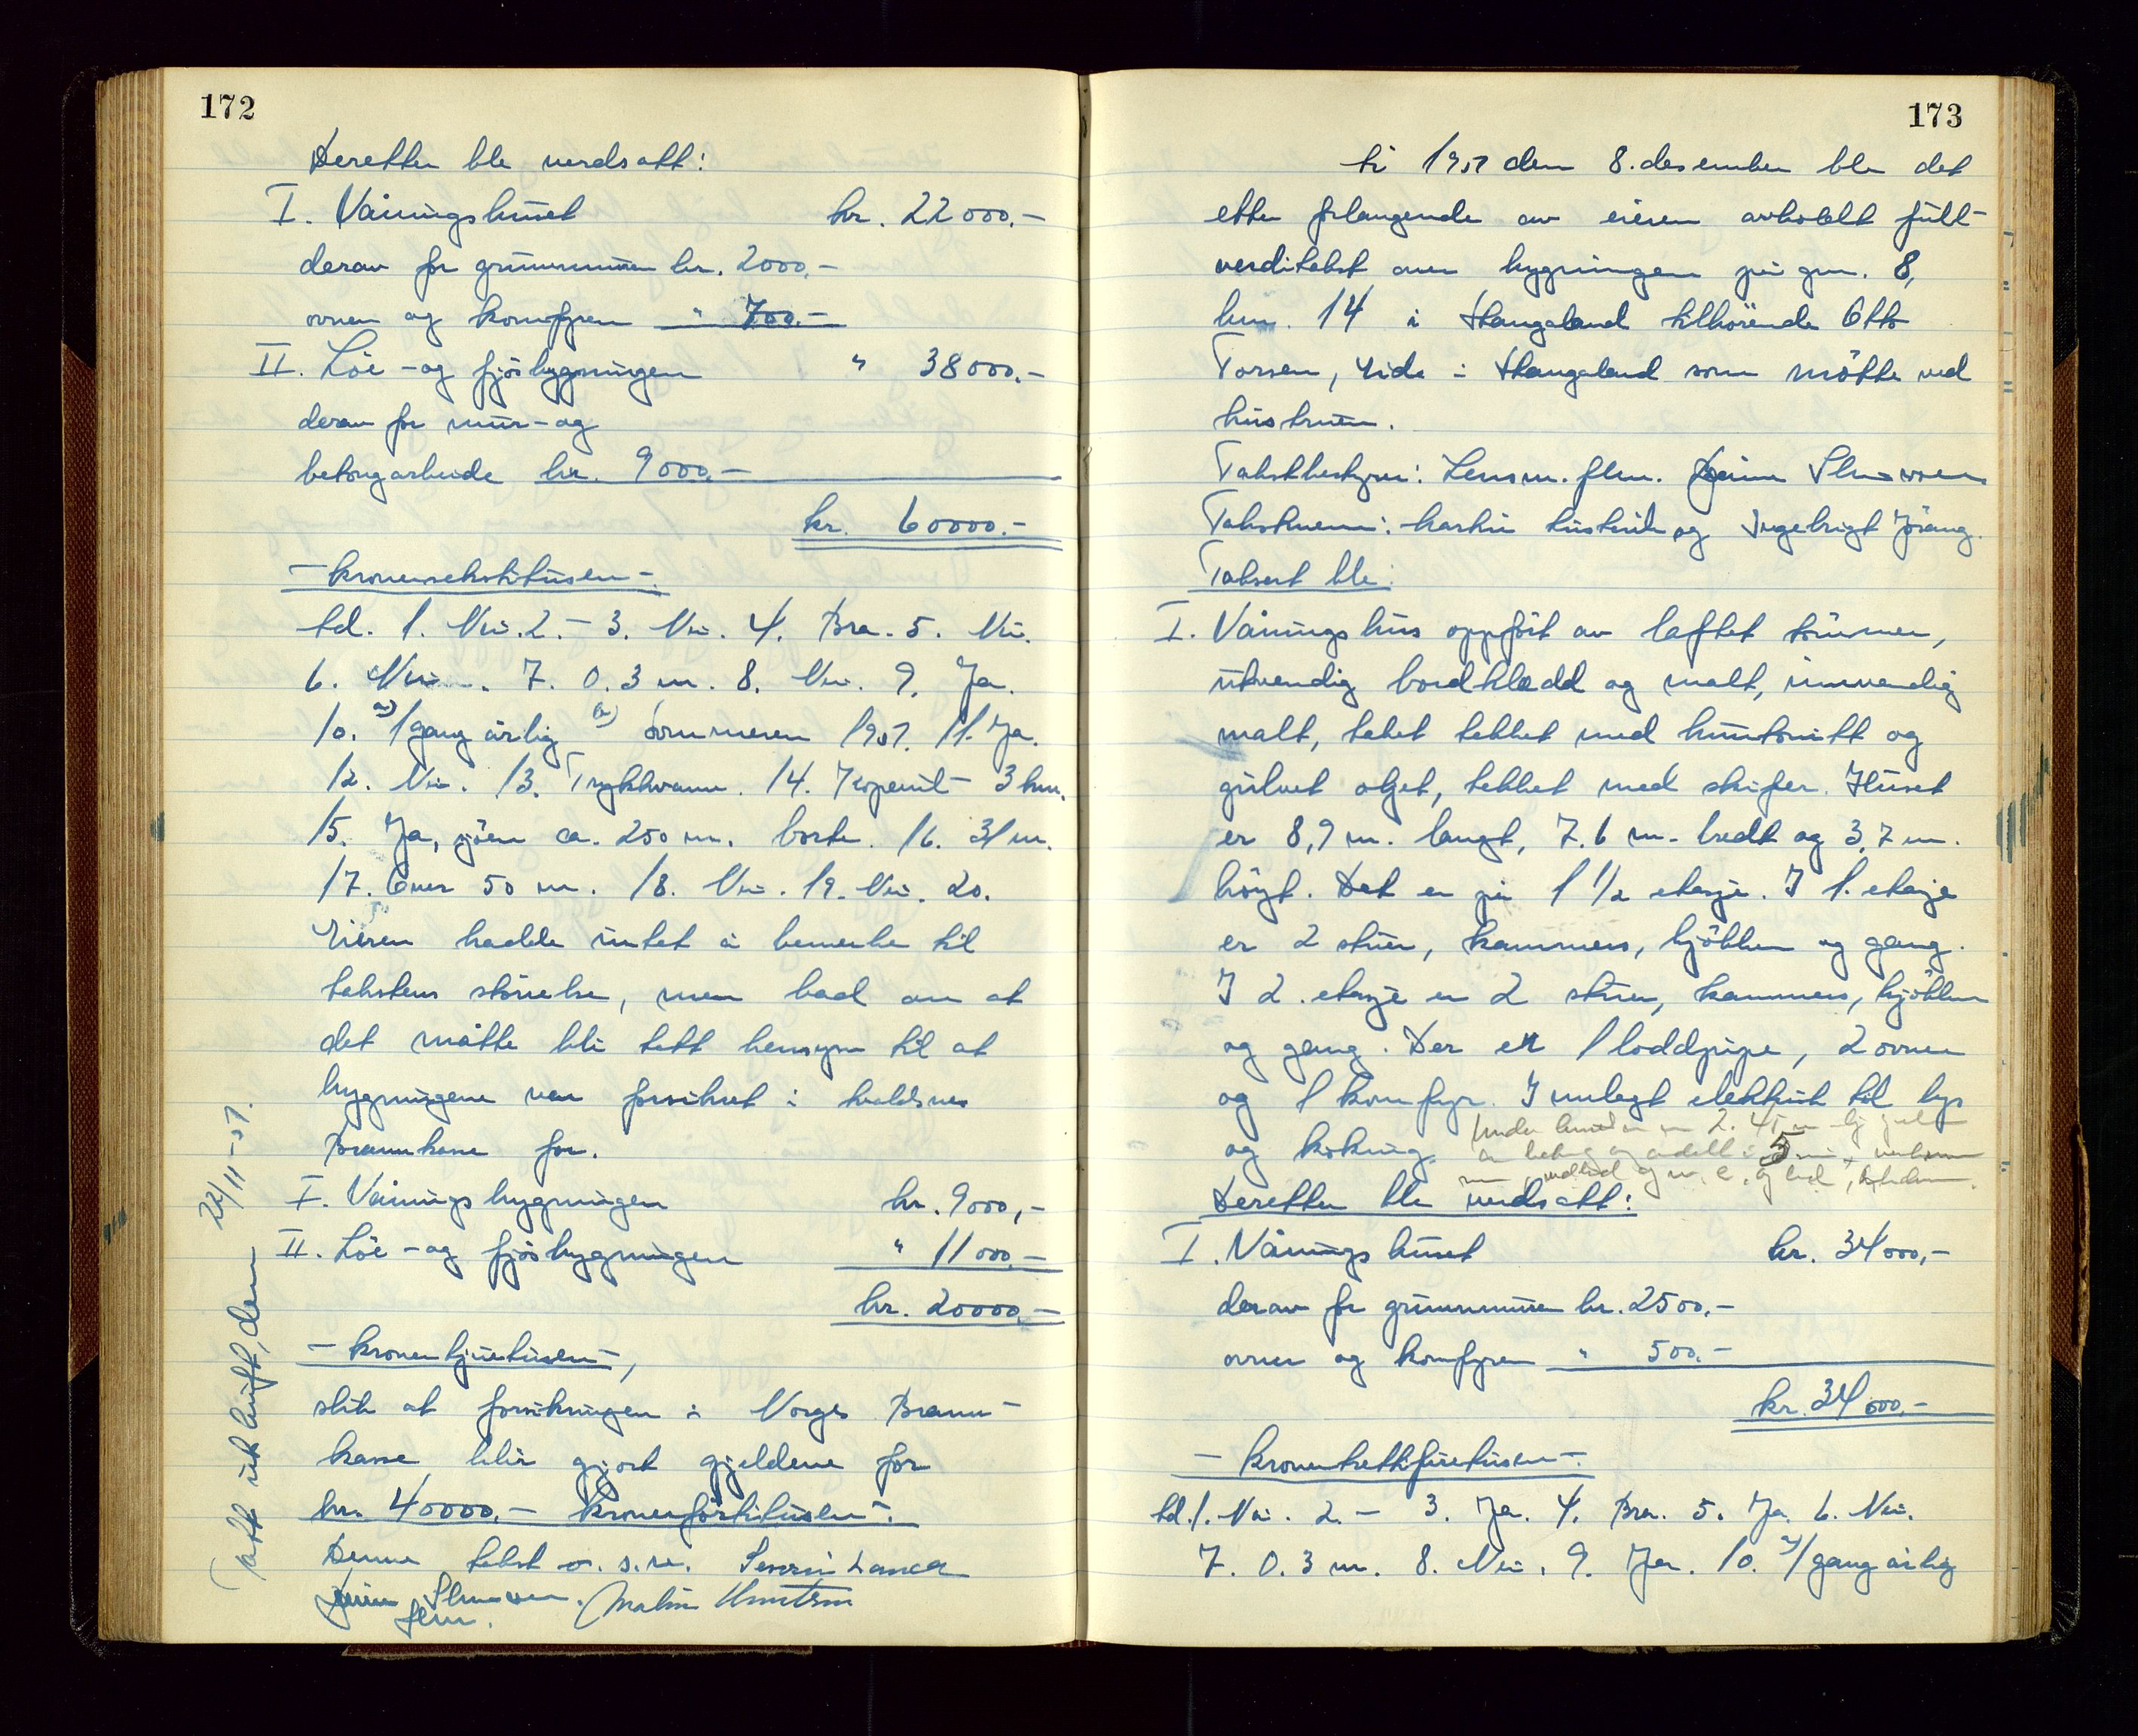 172
Deretter ble verdsatt:
I. Våningshuset kr. 22000.-
derav for grunnmuren kr. 2000,-
ovner og komfyren " 700.-
II. Löe- og fjösbygningen " 38000.-
derav for mur- og
betongarbeide kr. 9000,-
kr. 60000.-
- kronersekstitusen -.
bl. 1. Nei. 2. - 3. Nei. 4. Bra. 5. Nei.
6. Nei. 7. 0.3 m. 8. Nei. 9. Ja.
10. a) 1 gang årlig b) Sommeren 1951. 11. Ja.
12. Nei. 13. Trykkvann. 14. Kopervik 3 km.
15. Ja, sjöen ca. 250 m. borte. 16. 31 m.
17. Over 50 m. 18. Nei. 19. Nei. 20.
Eieren hadde intet å bemerke til
takstens störrelse, men bad om at
det måtte bli tatt hensyn til at
bygningene var forsikret i
Brannkasse for.
I. Våningsbygningen kr. 9000,-
II. Löe- og fjösbygningen " 11000.-
kr. 20000,-
- kronertjuetusen -,
slik at forsikringen i Norges Brann-
kasse blir gjort gjeldene for
kr. 40000.- kronerförtitusen -.
Denne takst o. s. v.
flm.
Tatt utskrift, den 22/11-51.
173
År 1951 den 8. desember ble det
etter forlangende av eieren avholdt full-
verditakst over bygningen på gnr. 8,
bnr. 14 i Stangeland tilhörende Otto
Torsen, Eide i Stangeland som mötte ved
hustruen.
Takstbestyrer: Lensm. flm.
Takstmenn: og Ingebrigt
Taksert ble:
I. Våningshus oppfört av laftet tömmer,
utvendig bordkledd og malt, innvendig
malt, taket tekket med og
gulvet tekket med skifer. Huset
er 8,9 m. langt, 7.6 m. bredt og 3,7 m.
höyt. Det er på 1 1/2 etasje. I 1. etasje
er 2 stuer, kammers, kjökken og gang.
I 2. etasje er 2 stuer, kammers, kjökken
og gang. Der er 1 loddpipe, 2 ovner
og 1 komfyr. Innlagt elektrisk til lys
og koking.
Deretter ble verdsatt:
I. Våningshuset kr. 34000,-
derav for grunnmuren kr. 2500.-
ovner og komfyren " 500.-
kr. 34000.-
- kronertrettifiretusen -.
bl. 1. Nei. 2. - 3. Ja. 4. Bra. 5. Ja. 6. Nei.
7. 0.3 m. 8. Nei. 9. Ja. 10. a) 1 gang årlig